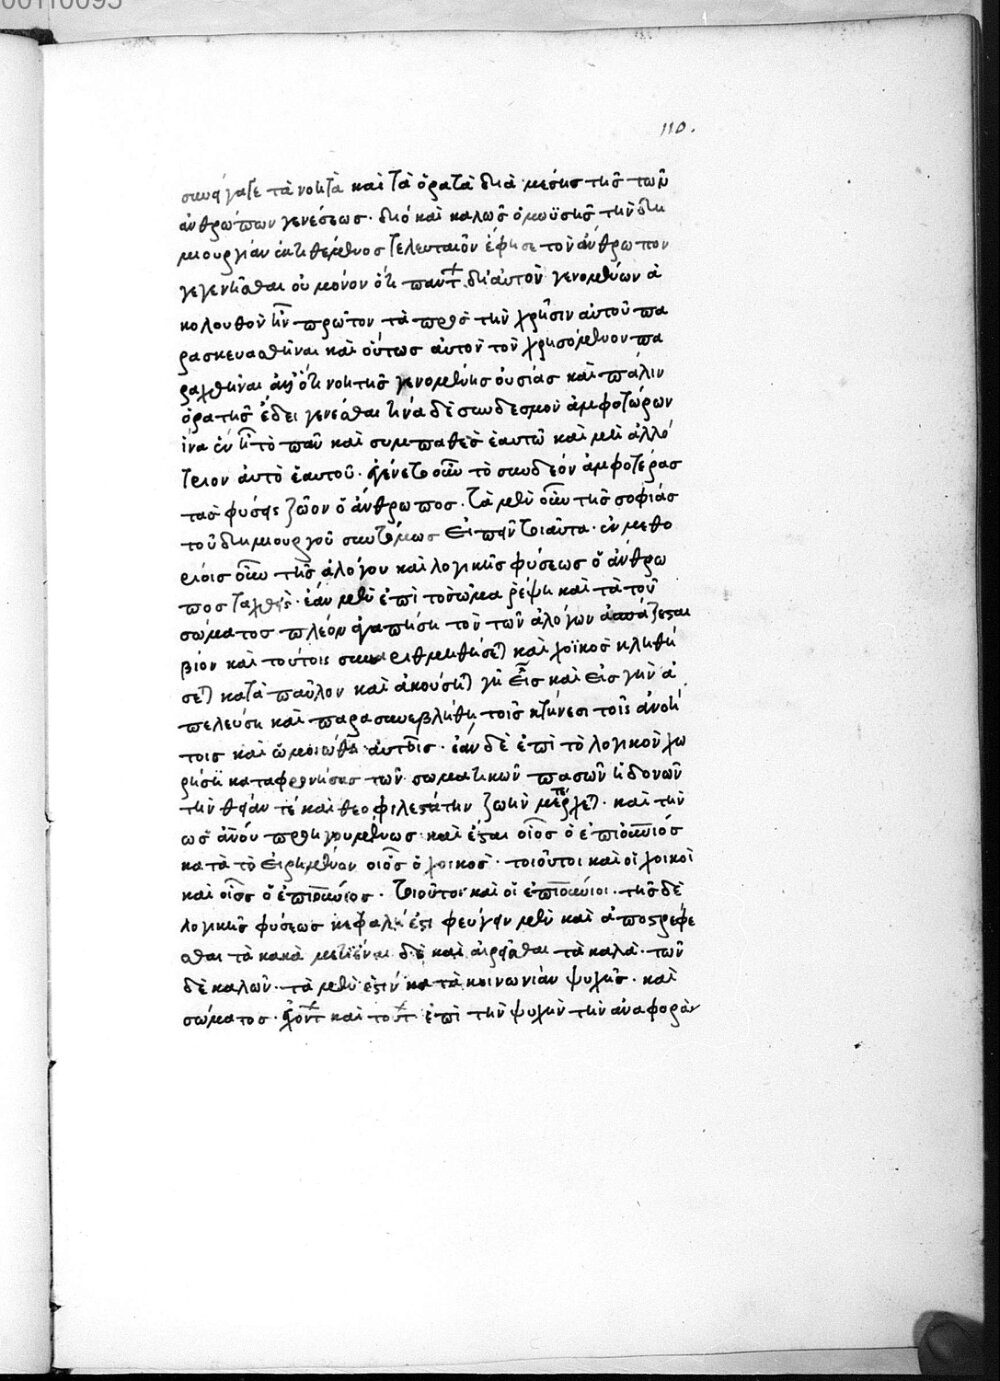 110.
συνήγαγε τὰ νοητὰ καὶ τὰ ὁρατὰ διὰ μέσης τῆς τῶν
ἀνθρώπων γενέσεως· διὸ καὶ καλῶς ὁ μωϋσῆς τὴν δη
μιουργίαν ἐκτιθέμενος τελευταῖον ἔφησε τὸν ἄνθρωπον
γεγενῆσθαι οὐ μόνον ὅτι πάντ δι' αὐτὸν γενομένων ἀ
κόλουθον ἦν πρῶτον τὰ πρὸς τὴν χρῆσιν αὐτοῦ πα
ρασκευασθῆναι καὶ οὕτως αὐτὸν τὸν χρησόμενον πα
ραχθῆναι ὅτι νοητῆς γενομένης οὐσίας καὶ πάλιν
ὁρατῆς ἔδει γενέσθαι τινὰ δὲ σύνδεσμον ἀμφοτέρων
ἵνα ἓν ἦ τὸ πᾶν καὶ συμπαθὲς ἑαυτῶ καὶ μὴ ἀλλό
τριον αὐτὸ ἑαυτοῦ· ἐγένετο οὖν τὸ συνδέον ἀμφοτέρας
τὰς φύσεις ζῶον ὁ ἄνθρωπος· τὰ μὲν οὖν τῆς σοφίας
τοῦ δημιουργοῦ συντόμως εἰπεῖν τοιαῦτα· ἐν μεθο
ρίοις οὖν τῆς ἀλόγου καὶ λογικῆς φύσεως ὁ ἄνθρω
πος ταχθεὶς· ἐὰν μὲν ἐπὶ τὸ σῶμα ῥέψη καὶ τὰ τοῦ
σώματος πλέον ἀγαπήση τὸν τῶν ἀλόγων ἀσπάζεται
βίον καὶ τούτοις συναριθμηθήσε) καὶ χοϊκὸς κληθή
σε) κατὰ παῦλον καὶ ἀκούση) γῆ εἶς καὶ εἰς γῆν ἀ
πελεύση καὶ παρασυνεβλήθη τοῖς κτήνεσι τοῖς ἀνοή
τοις καὶ ὡμοιώθη αὐτοῖς· ἐὰν δὲ ἐπὶ τὸ λογικὸν χω
ρήση καταφρονήσας τῶν σωματικῶν πασῶν ἡδονῶν
τὴν θείαν τὲ καὶ θεοφιλεστάτην ζωὴν μετέρχε)· καὶ τὴν
ὡς ἀνον προηγουμένως καὶ ἔσται οἷος ὁ ἐπουνιος
κατὰ τὸ εἰρημένον οἷος ὁ χοικὸς· τοιοῦτοι καὶ οἱ χοικοὶ
καὶ οἷος ὁ ἐπουνιος· τοιοῦτοι καὶ οἱ ἐπουνιοι· τῆς δὲ
λογικῆς φύσεως κεφαλή ἐστι φεύγειν μὲν καὶ ἀποστρέφε
σθαι τὰ κακὰ μετιέναι δὲ καὶ αἱρεῖσθαι τὰ καλὰ· τῶν
δὲ καλῶν· τὰ μὲν ἐστὶν κατὰ κοινωνίαν ψυχῆς· καὶ
σώματος· ἐχόντ καὶ τούτ ἐπὶ τὴν ψυχὴν τὴν ἀναφορὰν